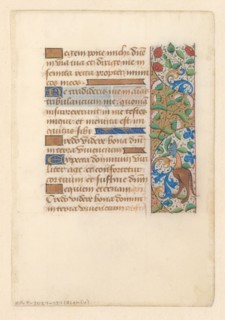 Legem pone michi dñe
in via tua et dirige me in
semita recta propter inimi
cos meos
Ne tradideris me in aĩas
tribulantium me quoniã
insurrexerunt in me testes
iniqui et mentita est ini
quitas sibi
Credo videre bona dñi
in terra viventium
Expecta dominum viri
liter age et confortetur
cor tuum et sustine dñm
Requiem eternam
Credo videre bona domini
in terra viventium